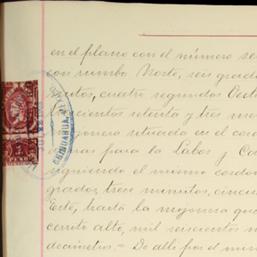 en el plano con el número se
con rumbo Norte, seis grad
utos, cuatro segundos Oest
cientos setenta y tres me
onera situada en el cor
anas para la Labor y Ca
siguiendo el mismo cordon
grados, trece minutos, cinc
Este, hasta la mojonera que
cerrito alto, mil seiscientos n
decímetros.- De allí por el mis
CHIHUAHUA
PESO